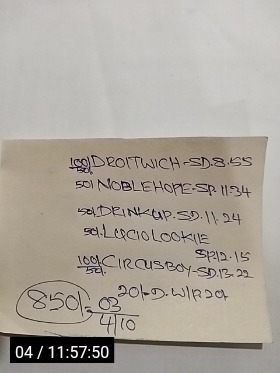 100/50/ DROITWICH-SD.8.55
50/ NOBLEHOPE-SP.11.34
50/ DRINKUP.SD.11.24
50/ LUCIOLOOKIE
SP.12.15
100/50/ CIRCUSBOY-SD.13.22
20/-D.W/P.20/
850/- 03
4/10
04 / 11:57:50